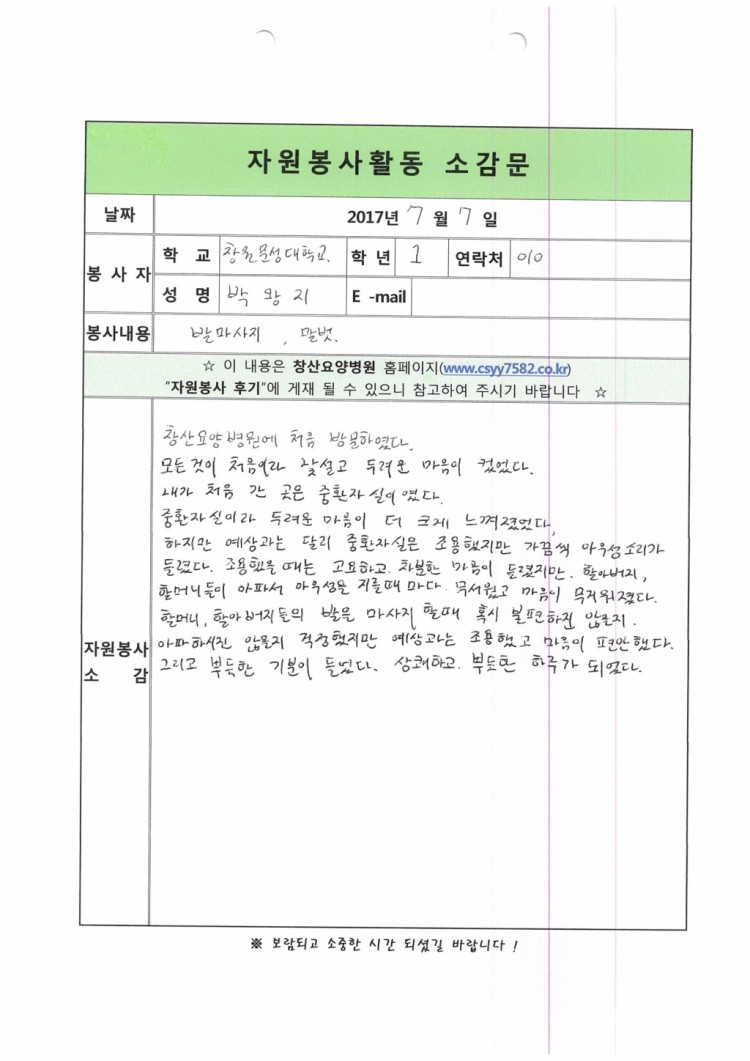 자원봉사활동 소감문
날짜 2017년 7 월 7 일
봉 사 자 학 교 창원문성대학교. 학 년 1 연락처 010
성 명 박 왕 지 E -mail
봉사내용 발마사지, 말벗.
☆ 이 내용은 창산요양병원 홈페이지(www.csyy7582.co.kr)
“자원봉사 후기”에 게재 될 수 있으니 참고하여 주시기 바랍니다 ☆
자원봉사
소 감
창산요양병원에 처음 방문하였다.
모든것이 처음이라 낯설고 두려운 마음이 컸었다.
내가 처음 간 곳은 중환자실이였다.
중환자실이라 두려운 마음이 더 크게 느껴졌었다.
하지만 예상과는 달리 중환자실은 조용했지만 가끔씩 아우성소리가
들렸다. 조용했을때는 고요하고. 차분한 마음이 들렸지만. 할아버지,
할머니들이 아파서 아우성을 지를때 마다. 무서웠고 마음이 무거워졌다.
할머니, 할아버지들의 발을 마사지 할때 혹시 불편하진 않을지.
아파하시진 않을지 걱정했지만 예상과는 조용했고 마음이 편안했다.
그리고 뿌듯한 기분이 들었다. 상쾌하고. 뿌듯한 하루가 되었다.
※ 보람되고 소중한 시간 되셨길 바랍니다 !